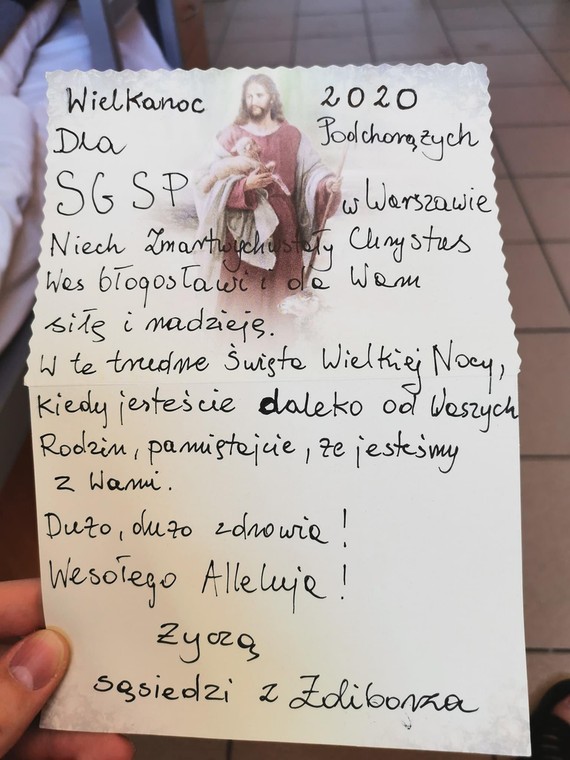 Wielkanoc 2020
Dla Podchorążych
SGSP w Warszawie
Niech Zmartwychwstały Chrystus
Was błogosławi i da Wam
siłę i nadzieję.
W te trudne Święta Wielkiej Nocy,
kiedy jesteście daleko od Waszych
Rodzin, pamiętajcie, że jesteśmy
z Wami.
Dużo, dużo zdrowia!
Wesołego Alleluja!
Życzą
sąsiedzi z